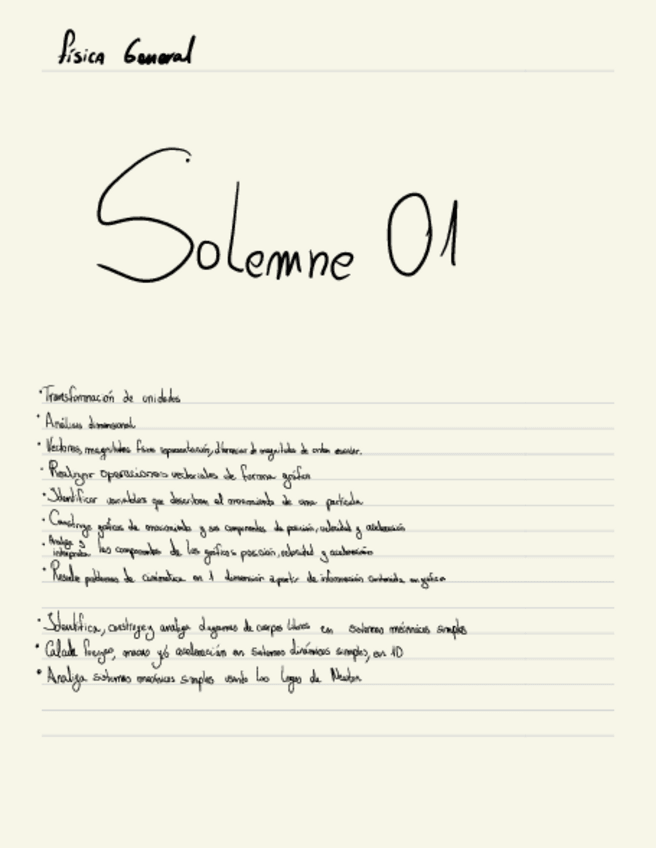 física General
Solemne 01
• Transformación de unidades
• Análisis dimensional
• Vectores, magnitudes física representación, diferenciar de magnitudes de orden escalar.
• Realizar operaciones vectoriales de forma gráfica
• Identificar variables que describen el movimiento de una partícula
• Construye gráficos de movimiento y sus componentes de posición, velocidad y aceleración
• Analiza y
interpreta las componentes de los gráficos posición, velocidad y aceleración
• Resuelve problemas de cinemática en 1 dimensión a partir de información contenida en gráfico
• Identifica, construye y analiza diagramas de cuerpos libres en sistemas mecánicos simples
• Calcula fuerzas, masas y/o aceleración en sistemas dinámicos simples, en 1D
• Analiza sistemas mecánicos simples usando las leyes de Newton